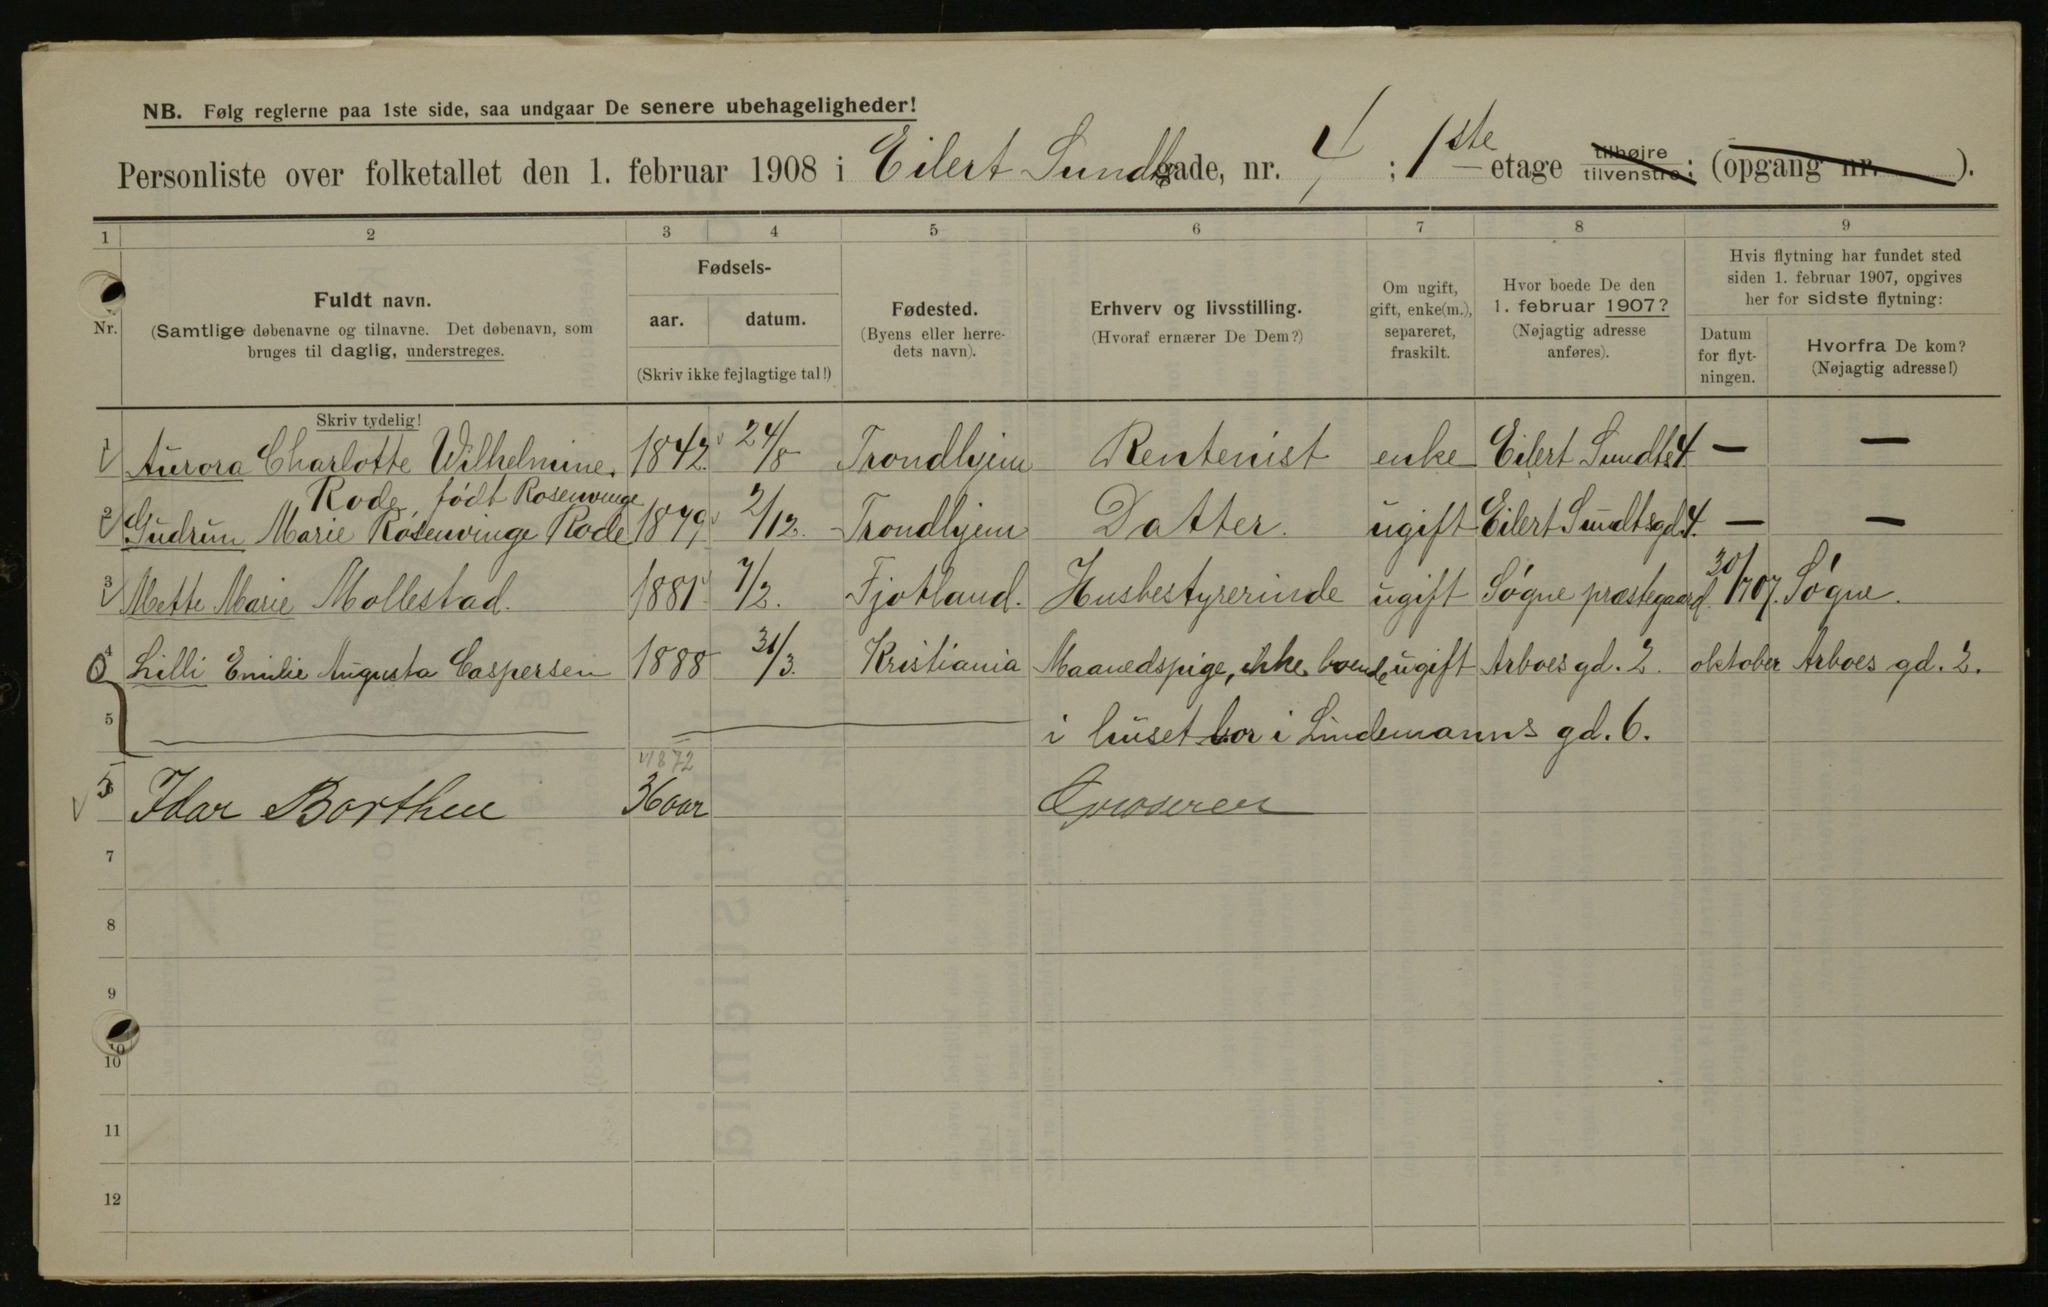 NB. Følg reglerne paa 1ste side, saa undgaar De senere ubehageligheder!
Personliste over folketallet den 1. februar 1908 i Eilert Sundts gade, nr. 4 ; 1ste etage tilhøjre tilvenstre; (opgang nr. ).
1 2 3 4 5 6 7 8 9
Nr. Fuldt navn. (Samtlige døbenavne og tilnavne. Det døbenavn, som bruges til daglig, understreges.
Fødsels-
aar. datum.
(Skriv ikke fejlagtige tal!)
Fødested. (Byens eller herredets navn).
Erhverv og livsstilling. (Hvoraf ernærer De Dem?)
Om ugift, gift, enke(m.), separeret, fraskilt.
Hvor boede De den 1. februar 1907? (Nøjagtig adresse anføres).
Hvis flytning har fundet sted siden 1. februar 1907, opgives her for sidste flytning:
Datum for flytningen.
Hvorfra De kom? (Nøjagtig adresse!)
Skriv tydelig!
1 Aurora Charlotte Wilhelmine. 1842 24/8 Trondhjem Rentenist enke Eilert Sundts 4 — —
Rode, født Rosenvinge
2 Gudrun Marie Rosenvinge Rode 1879 2/12. Trondhjem Datter. ugift Eilert Sundtsgd 4. — —
3 Mette Marie Mollestad. 1881 7/2. Fjotland. Husbestyrerinde ugift Søgne præstegaard 30/1 07. Søgne.
4 Lilli Emilie Augusta Caspersen 1888 31/3. Kristiania Maanedspige, ikke boende ugift Arboes gd. 2. oktober Arboes gd. 2.
5 i huset bor i Lindemanns gd. 6.
1872
5 Idar Borthen 36 aar
7
8
9
10
10
11
12